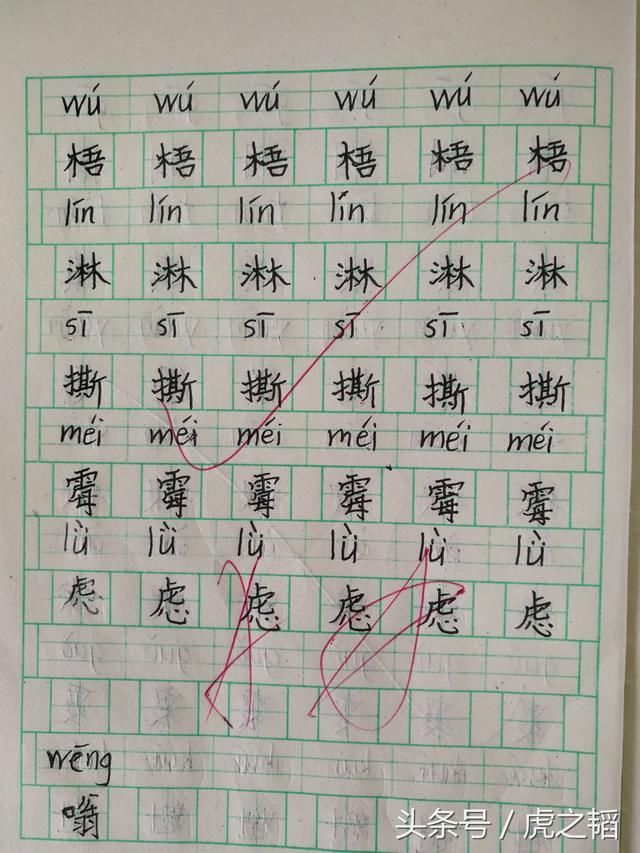 wú wú wú wú wú wú
梧 梧 梧 梧 梧 梧
lín lín lín lín lín lín
淋 淋 淋 淋 淋 淋
sī sī sī sī sī sī
撕 撕 撕 撕 撕 撕
méi méi méi méi méi méi
霉 霉 霉 霉 霉 霉
lǜ lǜ lǜ lǜ lǜ lǜ
虑 虑 虑 虑 虑 虑
wēng
嗡
头条号 / 虎之韬